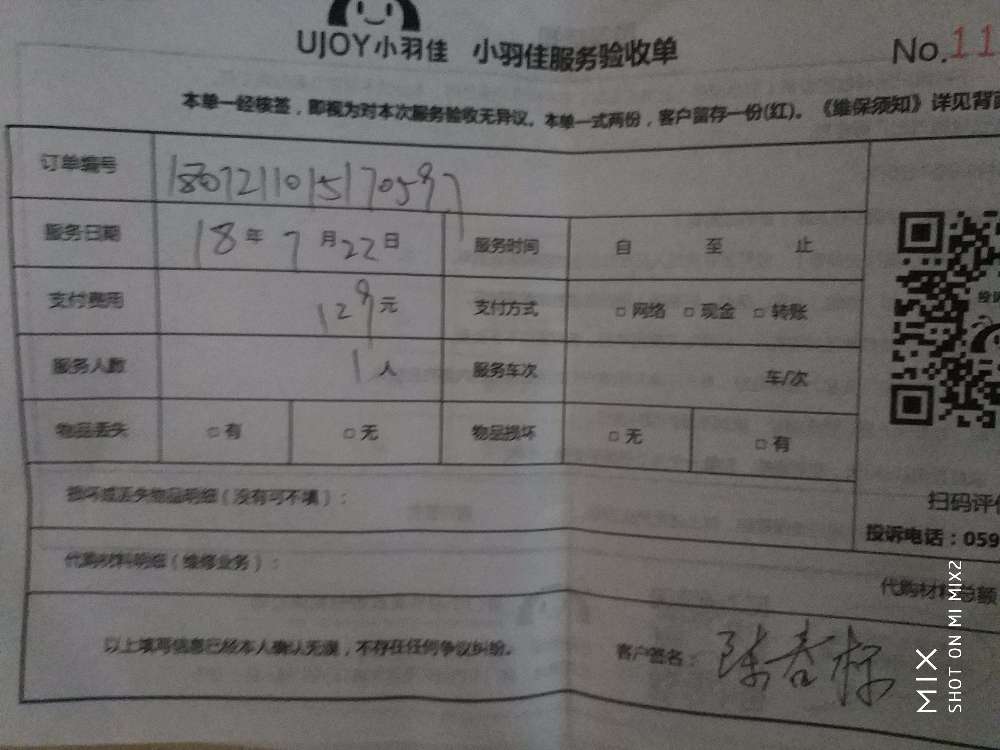 UJOY小羽佳 小羽佳服务验收单 No.11
本单一经核签，即视为对本次服务验收无异议。本单一式两份，客户留存一份(红)。《维保须知》详见背面
订单编号 1807211015170597
服务日期 18年7月22日 服务时间 自 至 止
支付费用 129元 支付方式 □网络 □现金 □转账
服务人数 1人 服务车次 车/次
物品丢失 □有 □无 物品损坏 □无 □有
损坏或丢失物品明细（没有可不填）：
扫码评价
投诉电话：059
代购材料明细（维修业务）：
代购材料总额
以上填写信息已经本人确认无误，不存在任何争议纠纷。 客户签名：陈春标
MIX
SHOT ON MI MIX2